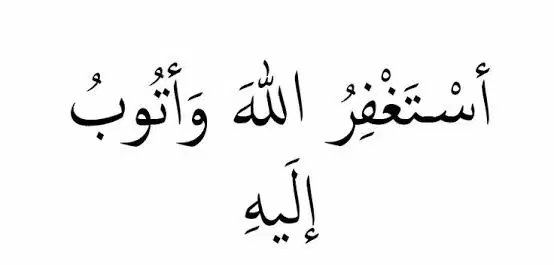 أسْتَغْفِرُ اللهَ وَأتُوبُ
إلَيهِ